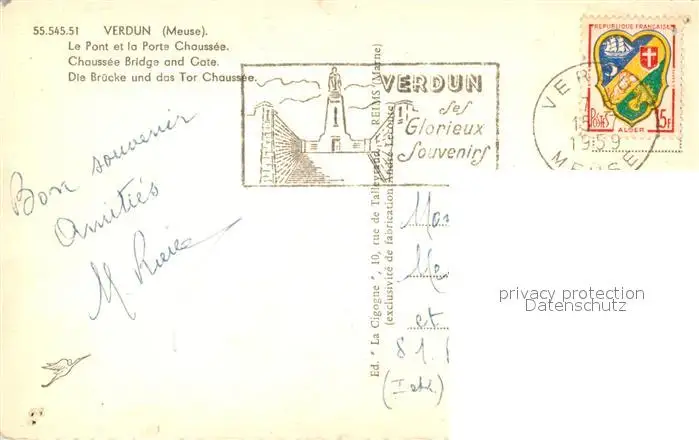 55.545.51 VERDUN (Meuse).
Le Pont et la Porte Chaussée.
Chaussée Bridge and Gate.
Die Brücke und das Tor Chaussée.
VERDUN
ses
Glorieux
Souvenirs
REPUBLIQUE FRANÇAISE
POSTES 15F
ALGER
VER
15
1959
MEUSE
Bon souvenir
Amitiés
M.
Ed. "La Cigogne", 10, rue de Talleyrand, REIMS (Marne)
(exclusivité de fabrication André Leconte)
et
81.
privacy protection
Datenschutz